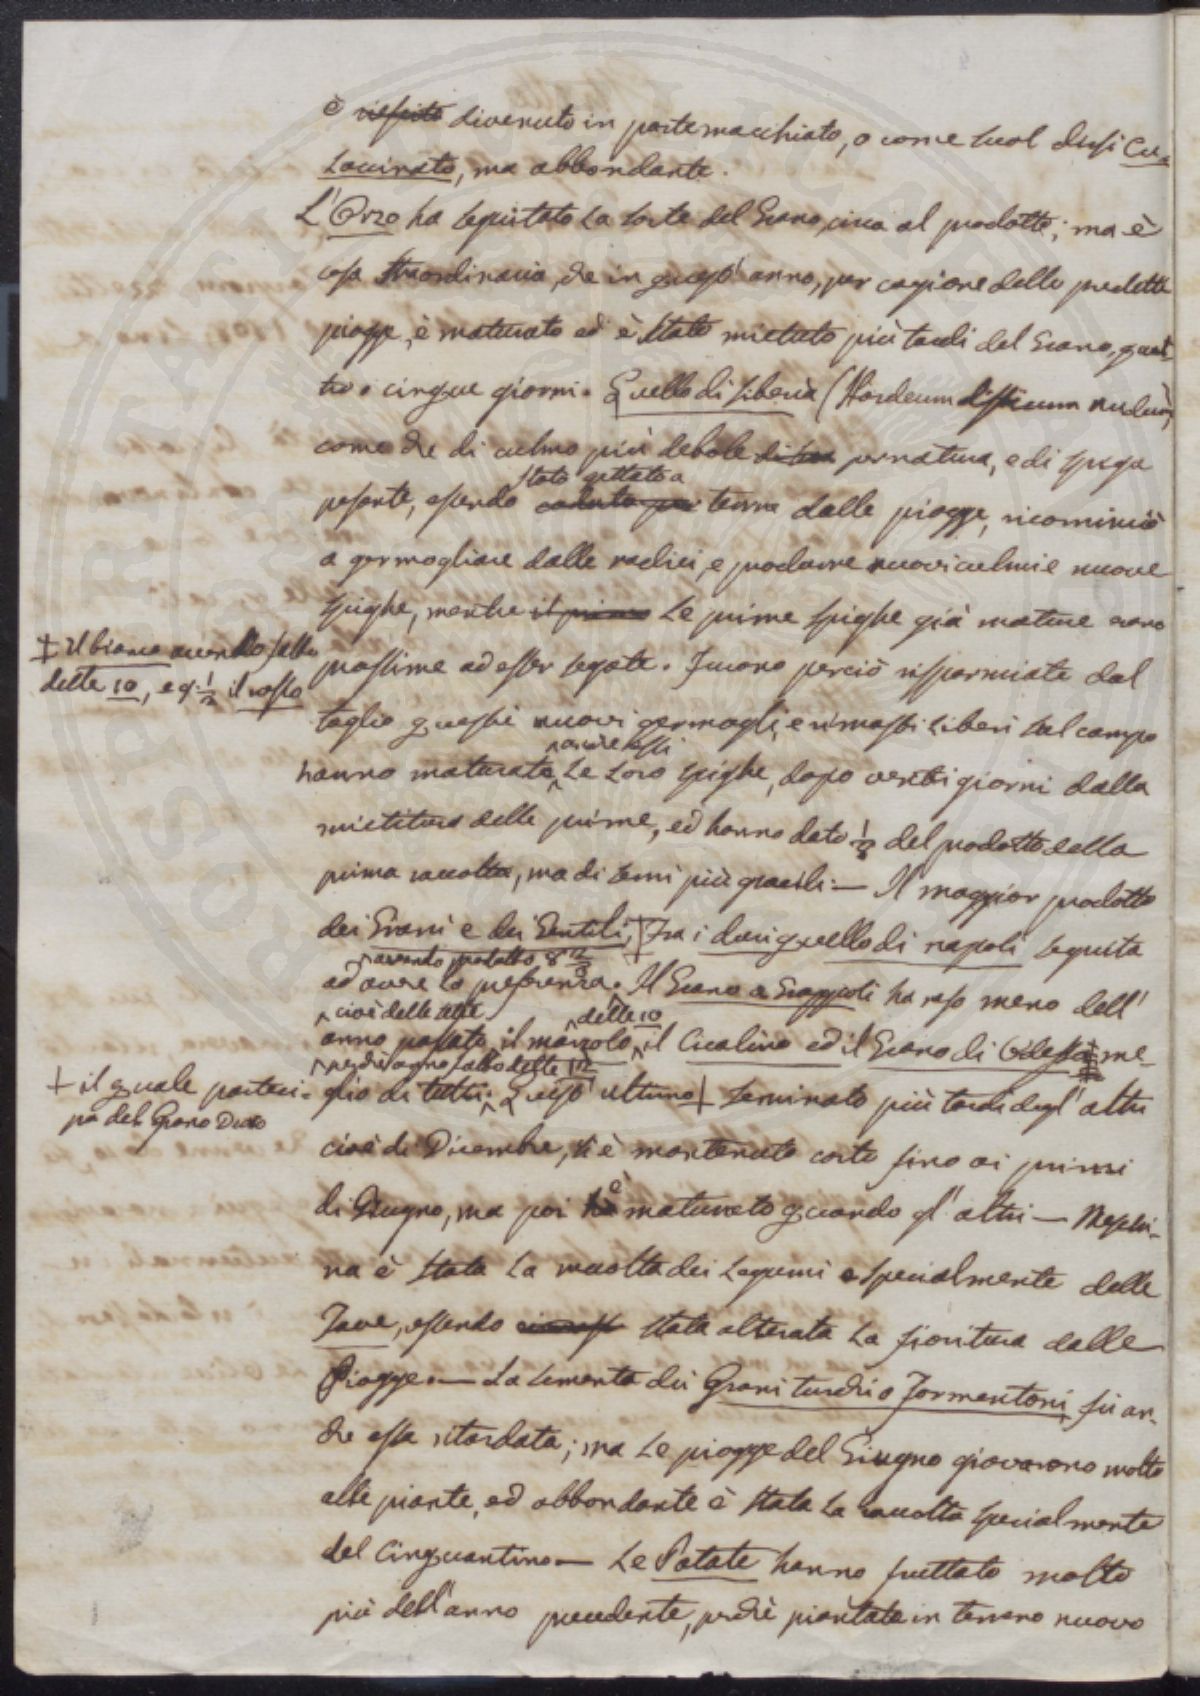 è riescito divenuto in parte macchiato, o come suol dirsi Cu-
laccinato, ma abbondante.
L'Orzo ha seguitato la sorte del Grano circa al prodotto; ma è
cosa straordinaria, che in quest'anno, per cagione delle predette
piogge, è maturato ed è stato mietuto più tardi del Grano, quat-
tro o cinque giorni. Quello di Siberia (Hordeum disticum nudum)
come che di culmo più debole per natura, e di spiga
stato gettato a
pesante, essendo caduto per terra dalle piogge, ricominciò
a germogliare dalle radici, e produrre nuovi culmi e nuove
spighe, mentre il primo le prime spighe già mature erano
‡ Il bianco avendo fatto
delle 10, e q. 1/2 il rosso
prossime ad esser segate. Furono perciò risparmiate dal
taglio questi nuovi germogli, e rimasti liberi sul campo
hanno maturato le loro spighe, dopo venti giorni dalla
mietitura delle prime, ed hanno dato del prodotto della
prima raccolta, ma di semi più gracili. — Il maggior prodotto
dei Grani è dei Gentili, ‡ Fra i duri quello di napoli seguita
avendo prodotto 8
ad avere la preferenza. Il Grano a Grappoli ha reso meno dell'
cioè delle sette
delle 10
anno passato, il marzolo, il Cicalino ed il Grano di Odessa me-
perchè ogno fatto delle 12
+ il quale parteci-
pa del Grano Duro
glio di tutti. Quest'ultimo + seminato più tardi degl'altri
cioè di Dicembre, si è mantenuto corto fino ai primi
di Giugno, ma poi è maturato quando gl'altri — Meschi-
na è stata la raccolta dei Legumi e specialmente delle
Fave, essendo stata alterata la fioritura dalle
Piogge. — La sementa dei Grani turchi o Formentoni fu an-
che essa ritardata; ma le piogge del Giugno giovarono molto
alle piante, ed abbondante è stata la raccolta specialmente
del Cinquantino — Le Patate hanno fruttato molto
più dell'anno precedente, perchè piantate in terreno nuovo